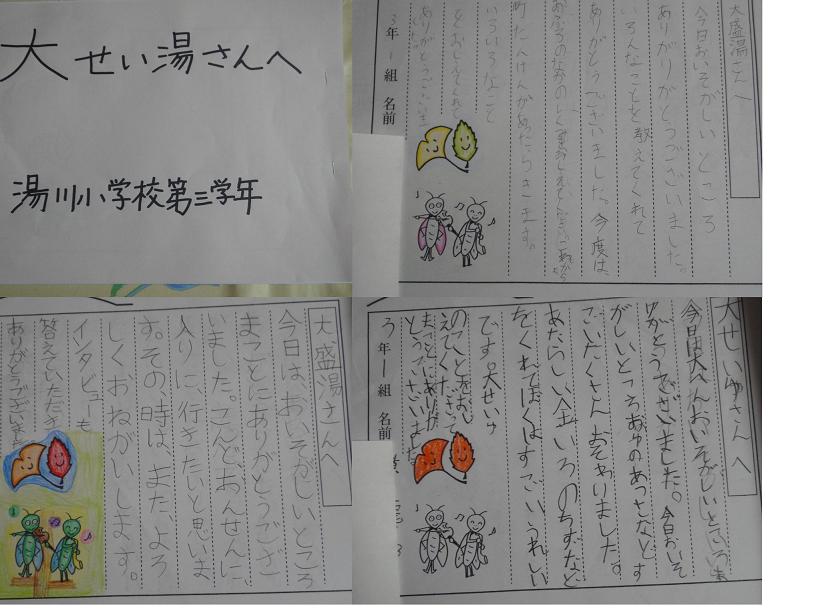 大せい湯さんへ
湯川小学校第三学年
大盛湯さんへ
今日おいそがしいところ
ありがりがとうございました。
いろんなことを教えてくれて
ありがとうございました。今度は、
いろいろなこと
をおしえてくれて
ありがとうございま
3年1組 名前
大盛湯さんへ
今日は、おいそがしいところ
まことにありがとうござ
いました。こんど、おんせんに、
入りに、行きたいと思いま
す。その、時は、また、よろ
しくおねがいします。
インタビューも
答えていただき
ありがとうございました
大せいゆさんへ
今日は大へんおいそがしいところあ
りがとうございました。今日おいそ
がしいところおゆのあつさなどす
ごいたくさんおそわりました。
あたらしい金いろのちずなど
をくれてぼくはすごいうれしい
です。大せいゆ
のことをおし
えてくださって
まことにありが
とうございました。
3年1組 名前